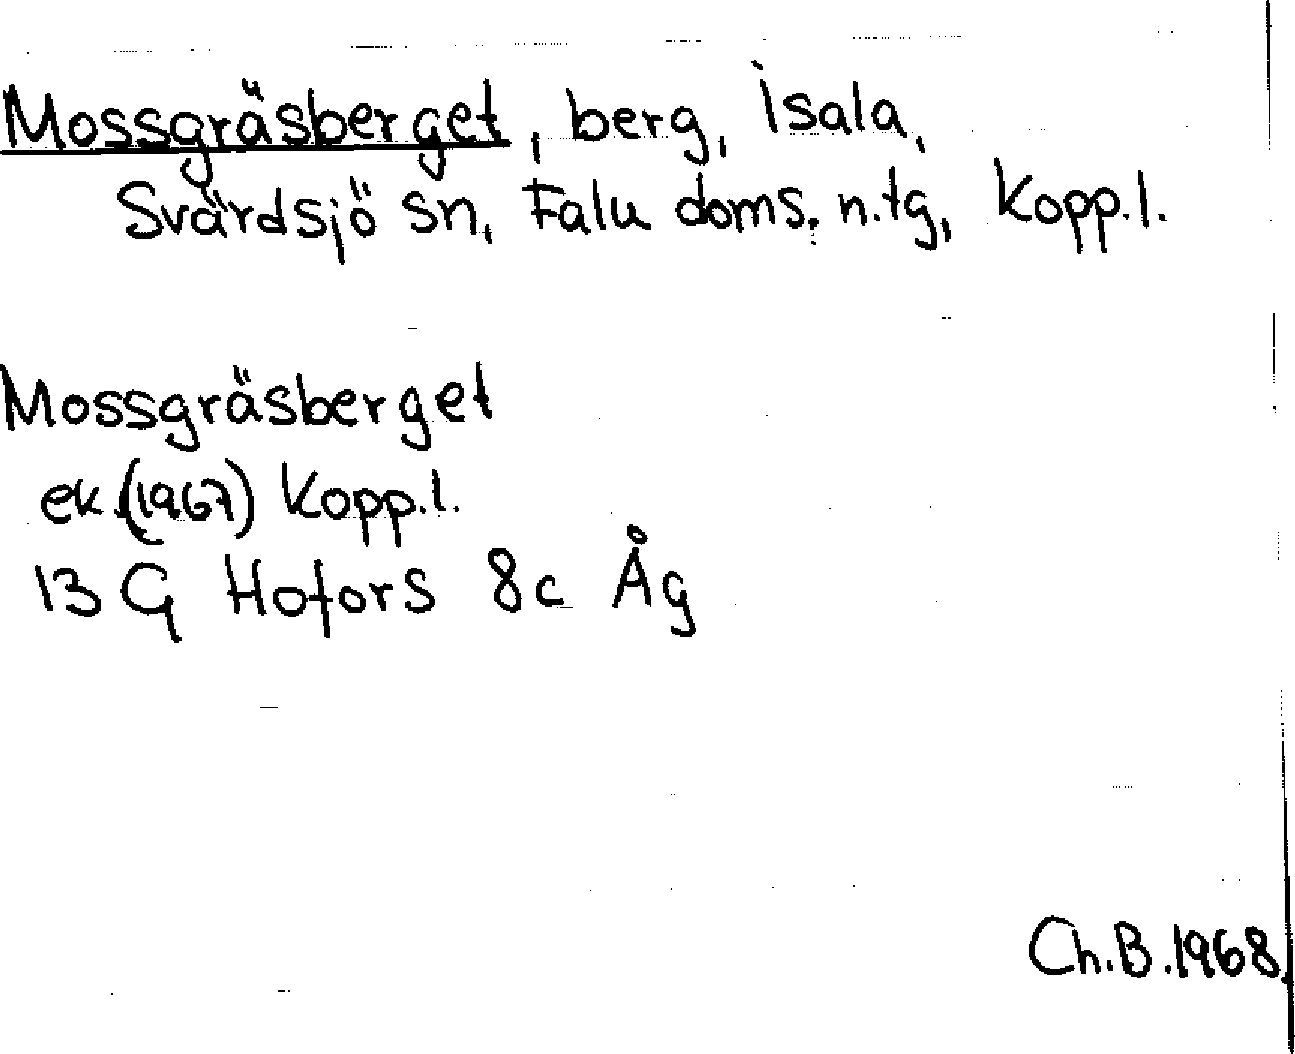 Mossgräsberget, berg, Isala,
Svärdsjö sn, Falu doms. n. tg, Kopp. l.
Mossgräsberget
ek. (1967) Kopp. l.
13 G Hofors 8c Åg
Ch. B. 1968.